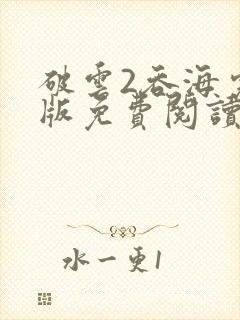 破雲2吞海
版免費閱讀
水一更1